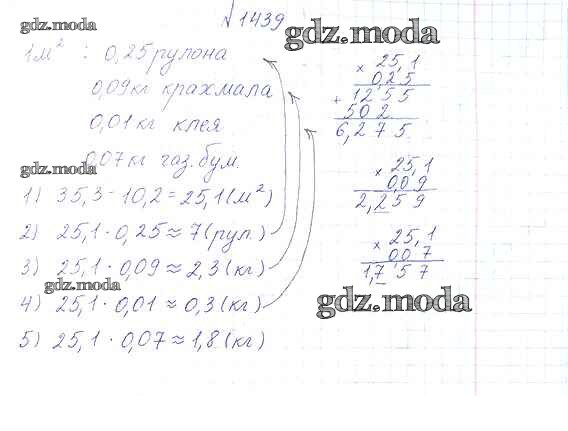 №1439
gdz.moda
gdz.moda
1м² : 0,25 рулона
0,09кг крахмала
0,01кг клея
0,07кг газ.бум.
gdz.moda
1) 35,3 - 10,2 = 25,1 (м²)
2) 25,1 · 0,25 ≈ 7 (рул.)
3) 25,1 · 0,09 ≈ 2,3 (кг)
gdz.moda
4) 25,1 · 0,01 ≈ 0,3 (кг)
5) 25,1 · 0,07 ≈ 1,8 (кг)
× 25,1
0,25
+ 1255
502
6,275
× 25,1
0,09
2,259
× 25,1
0,07
1,757
gdz.moda